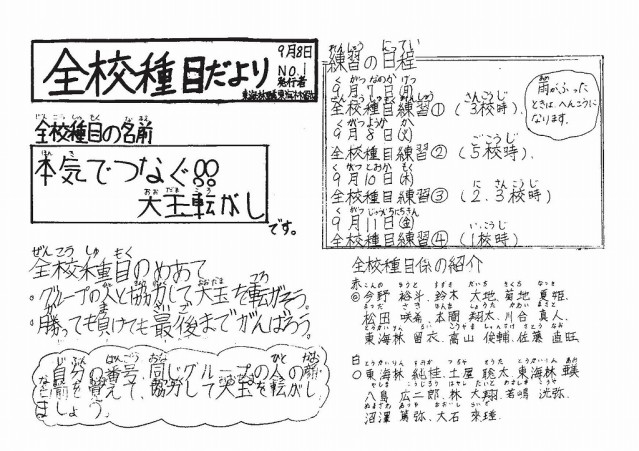 全校種目だより
9月8日
NO.1
発行者
全校種目の名前
本気でつなぐ!!
大玉転がし
です。
全校種目のめあて
・グループの人と協力して大玉を転がそう。
・勝っても負けても最後までがんばろう。
自分の番号、同じグループの人の顔
と名前を覚えて、協力して大玉を転がし
ましょう。
練習の日程
9月7日(月)
全校種目練習①(3校時)
9月8日(火)
全校種目練習②(5校時)
9月10日(木)
全校種目練習③(2.3校時)
9月11日(金)
全校種目練習④(1校時)
雨がふった
ときは へんこうに
なります。
全校種目係の紹介
赤
◎今野 裕斗、鈴木 大地、菊地 夏姫、
松田 咲希、本間 翔太、川合 真人、
東海林 留衣、高山 俊輔、佐藤 直旺
白
○東海林 純佳、土屋 聡太、東海林
八島 広二郎、林 大翔、若嶋 洸弥、
沼澤 篤弥、大石 來瑾、